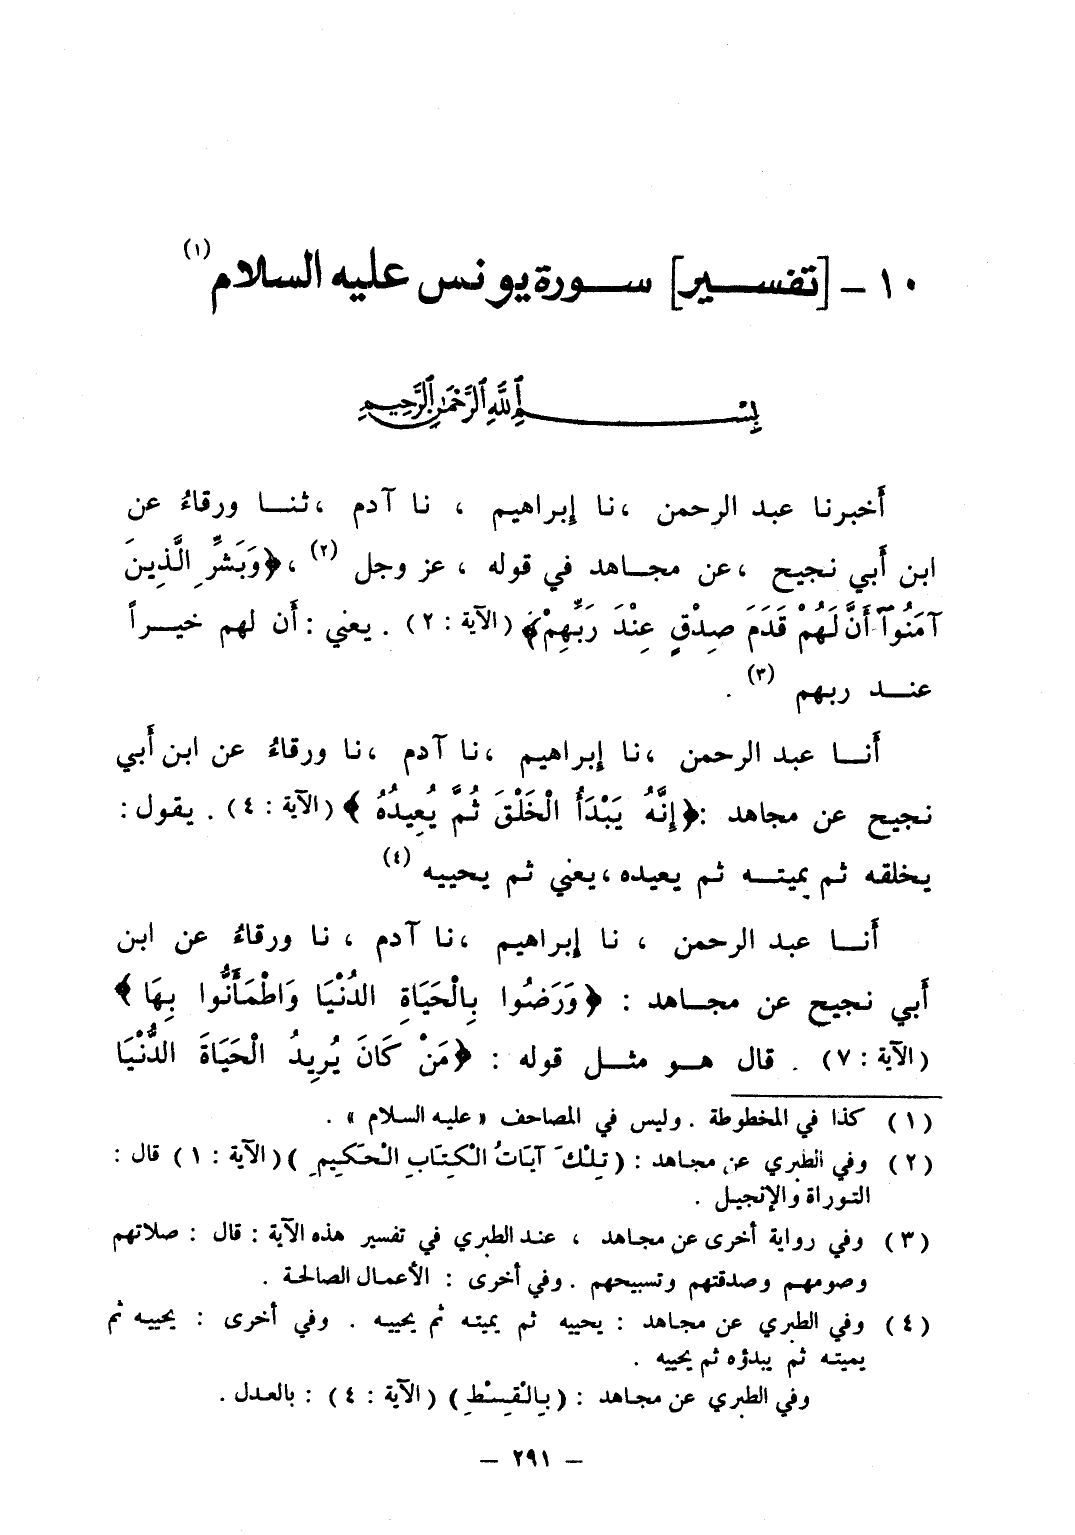 ١٠ - [تفسير] سورة يونس عليه السلام (١)
بِسْمِ اللَّهِ الرَّحْمَٰنِ الرَّحِيمِ
أَخبرنا عبد الرحمن ، نا إبراهيم ، نا آدم ، ثنا ورقاءُ عن
ابن أَبي نجيح ، عن مجاهد في قوله ، عز وجل (٢) ، ﴿وَبَشِّرِ الَّذِينَ
آمَنُوٓا أَنَّ لَهُمْ قَدَمَ صِدْقٍ عِنْدَ رَبِّهِمْ﴾ (الآية : ٢) . يعني : أَن لهم خيراً
عند ربهم (٣) .
أَنا عبد الرحمن ، نا إبراهيم ، نا آدم ، نا ورقاءُ عن ابن أَبي
نجيح عن مجاهد : ﴿إِنَّهُ يَبْدَأُ الْخَلْقَ ثُمَّ يُعِيدُهُ﴾ (الآية : ٤) . يقول :
يخلقه ثم يميته ثم يعيده ، يعني ثم يحييه (٤)
أَنا عبد الرحمن ، نا إبراهيم ، نا آدم ، نا ورقاءُ عن ابن
أَبي نجيح عن مجاهد : ﴿وَرَضُوا بِالْحَيَاةِ الدُّنْيَا وَاطْمَأَنُّوا بِهَا﴾
(الآية : ٧) . قال هو مثل قوله : ﴿مَنْ كَانَ يُرِيدُ الْحَيَاةَ الدُّنْيَا
(١) كذا في المخطوطة . وليس في المصاحف « عليه السلام » .
(٢) وفي الطبري عن مجاهد : (تِلْكَ آيَاتُ الْكِتَابِ الْحَكِيمِ) (الآية : ١) قال :
التوراة والإنجيل .
(٣) وفي رواية أخرى عن مجاهد ، عند الطبري في تفسير هذه الآية : قال : صلاتهم
وصومهم وصدقتهم وتسبيحهم . وفي أخرى : الأعمال الصالحة .
(٤) وفي الطبري عن مجاهد : يحييه ثم يميته ثم يحييه . وفي أخرى : يحييه ثم
يميته ثم يبدؤه ثم يحييه .
وفي الطبري عن مجاهد : (بِالْقِسْطِ) (الآية : ٤) : بالعدل .
- ٢٩١ -